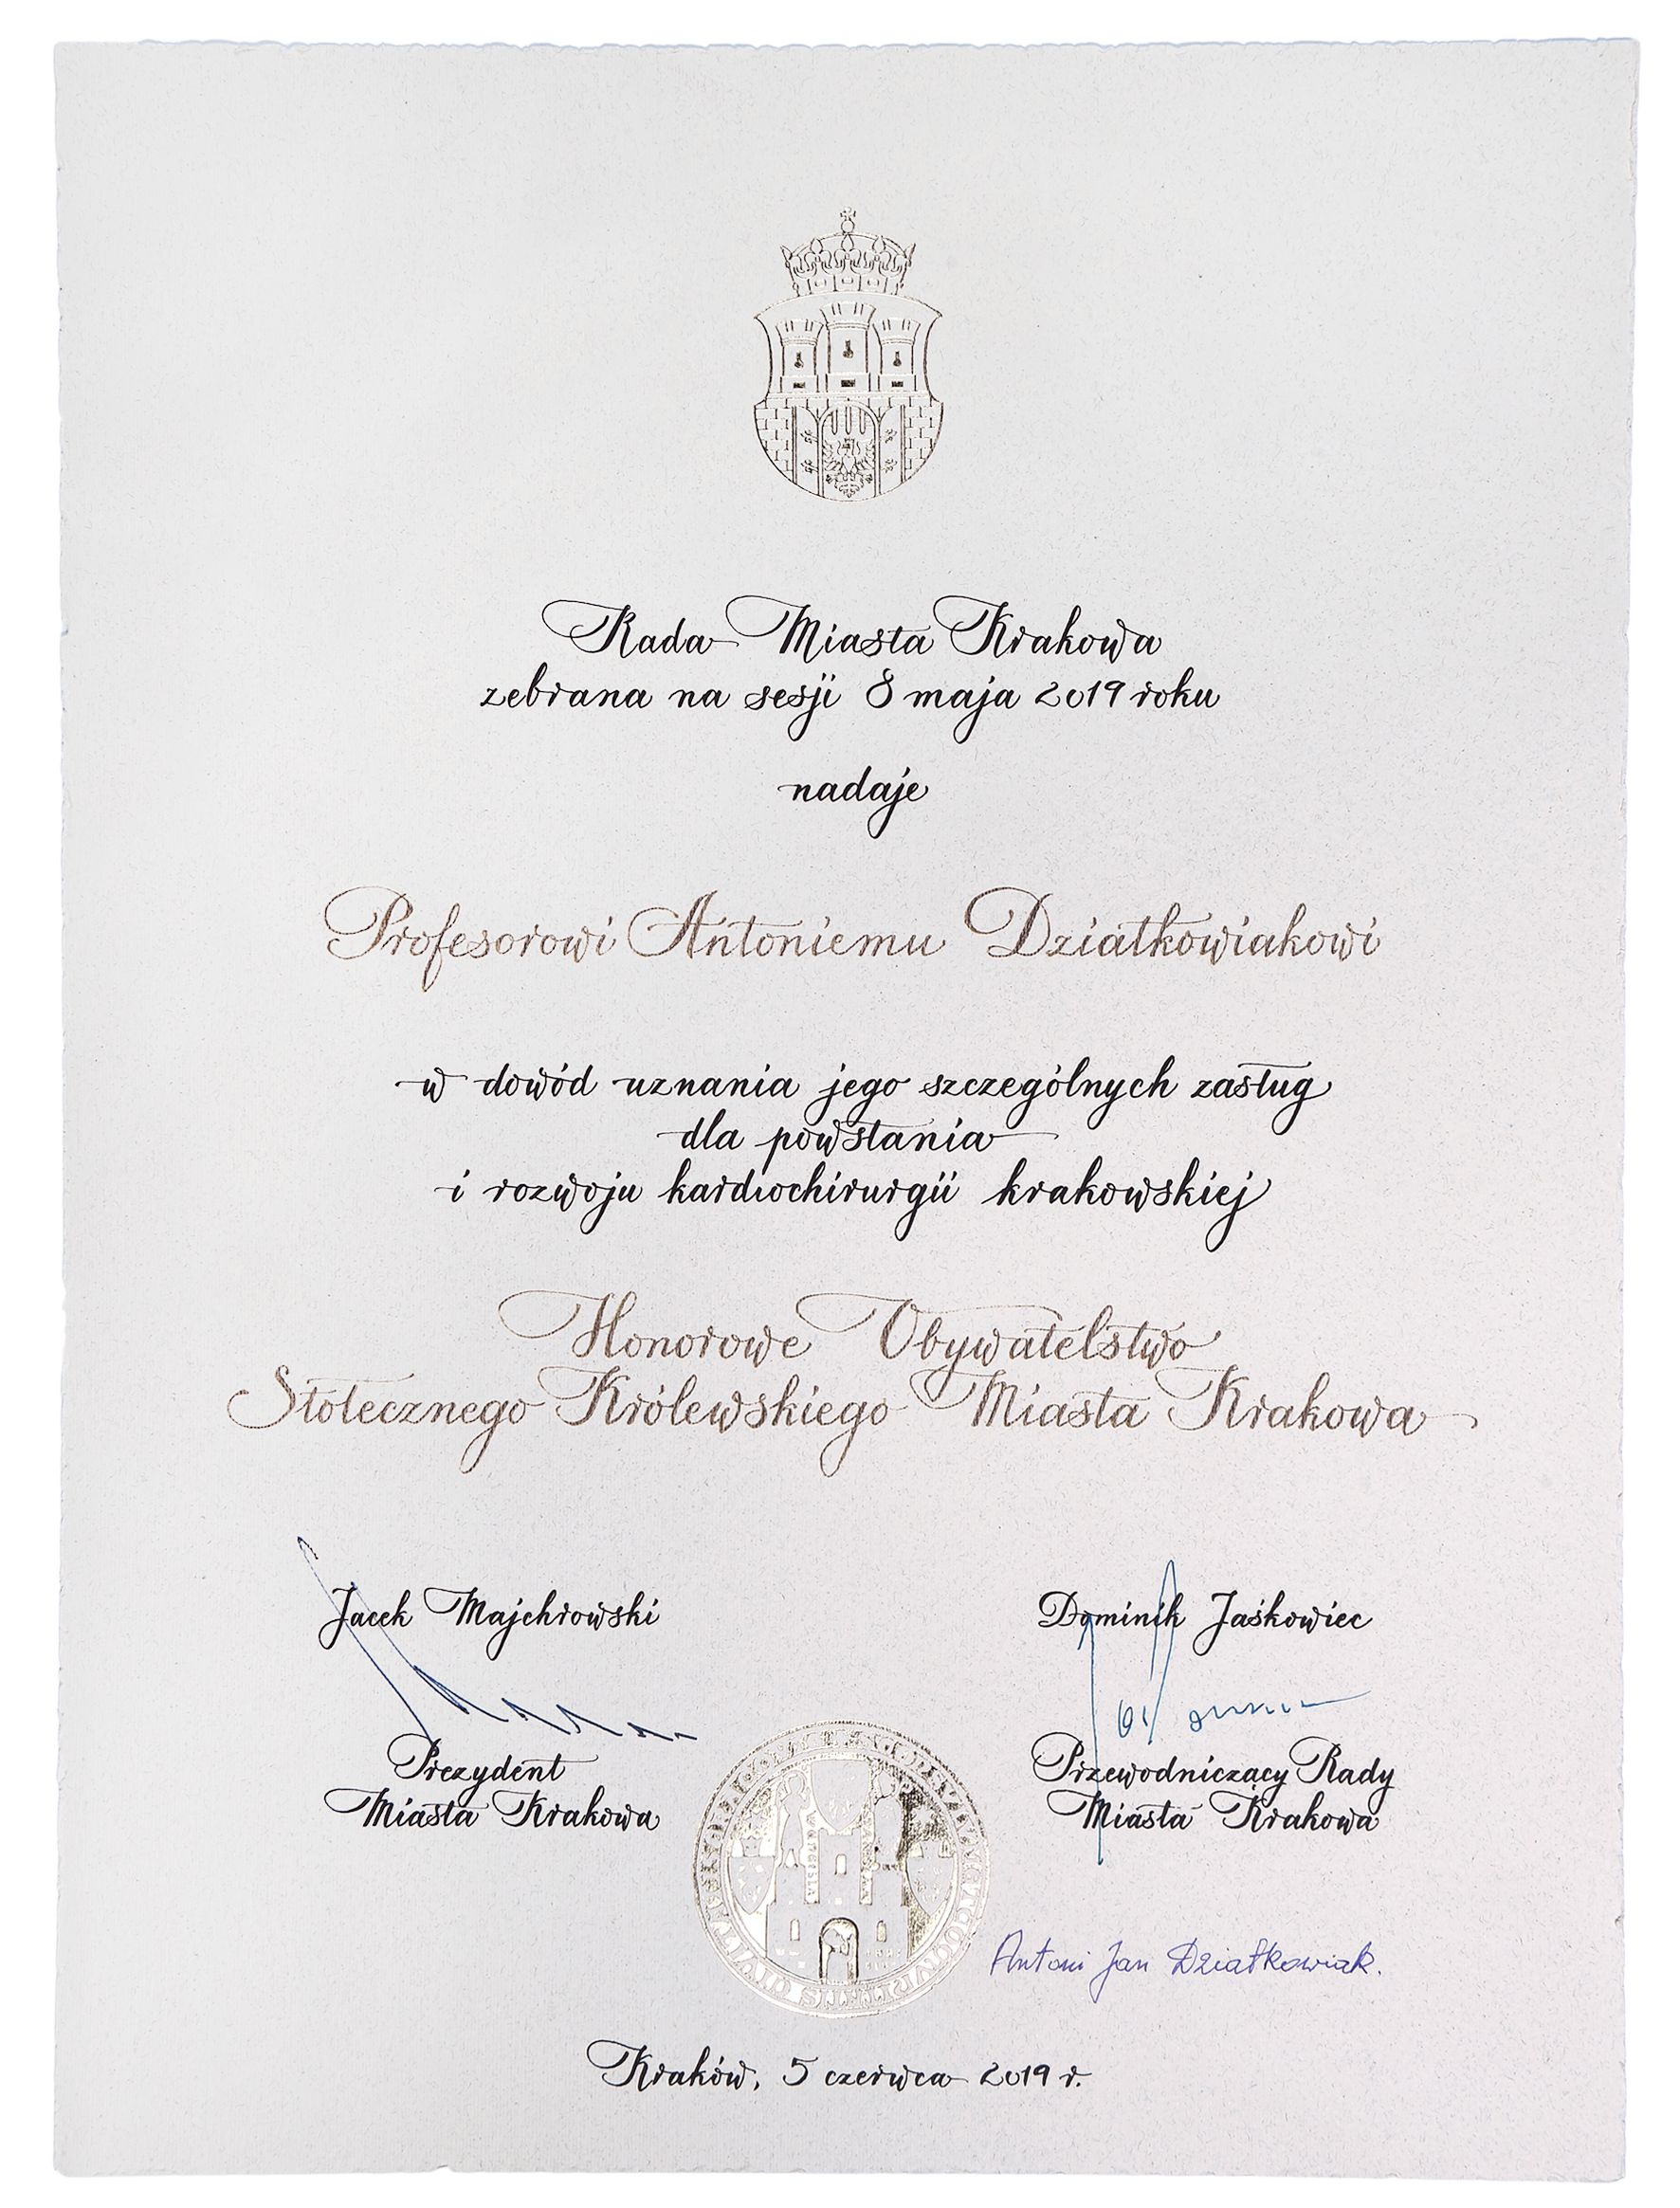 Rada Miasta Krakowa
zebrana na sesji 8 maja 2019 roku
nadaje
Profesorowi Antoniemu Dziatkowiakowi
w dowód uznania jego szczególnych zasług
dla powstania
i rozwoju kardiochirurgii krakowskiej
Honorowe Obywatelstwo
Stołecznego Królewskiego Miasta Krakowa
Jacek Majchrowski
Prezydent
Miasta Krakowa
Dominik Jaśkowiec
Przewodniczący Rady
Miasta Krakowa
Antoni Jan Dziatkowiak.
Kraków, 5 czerwca 2019 r.